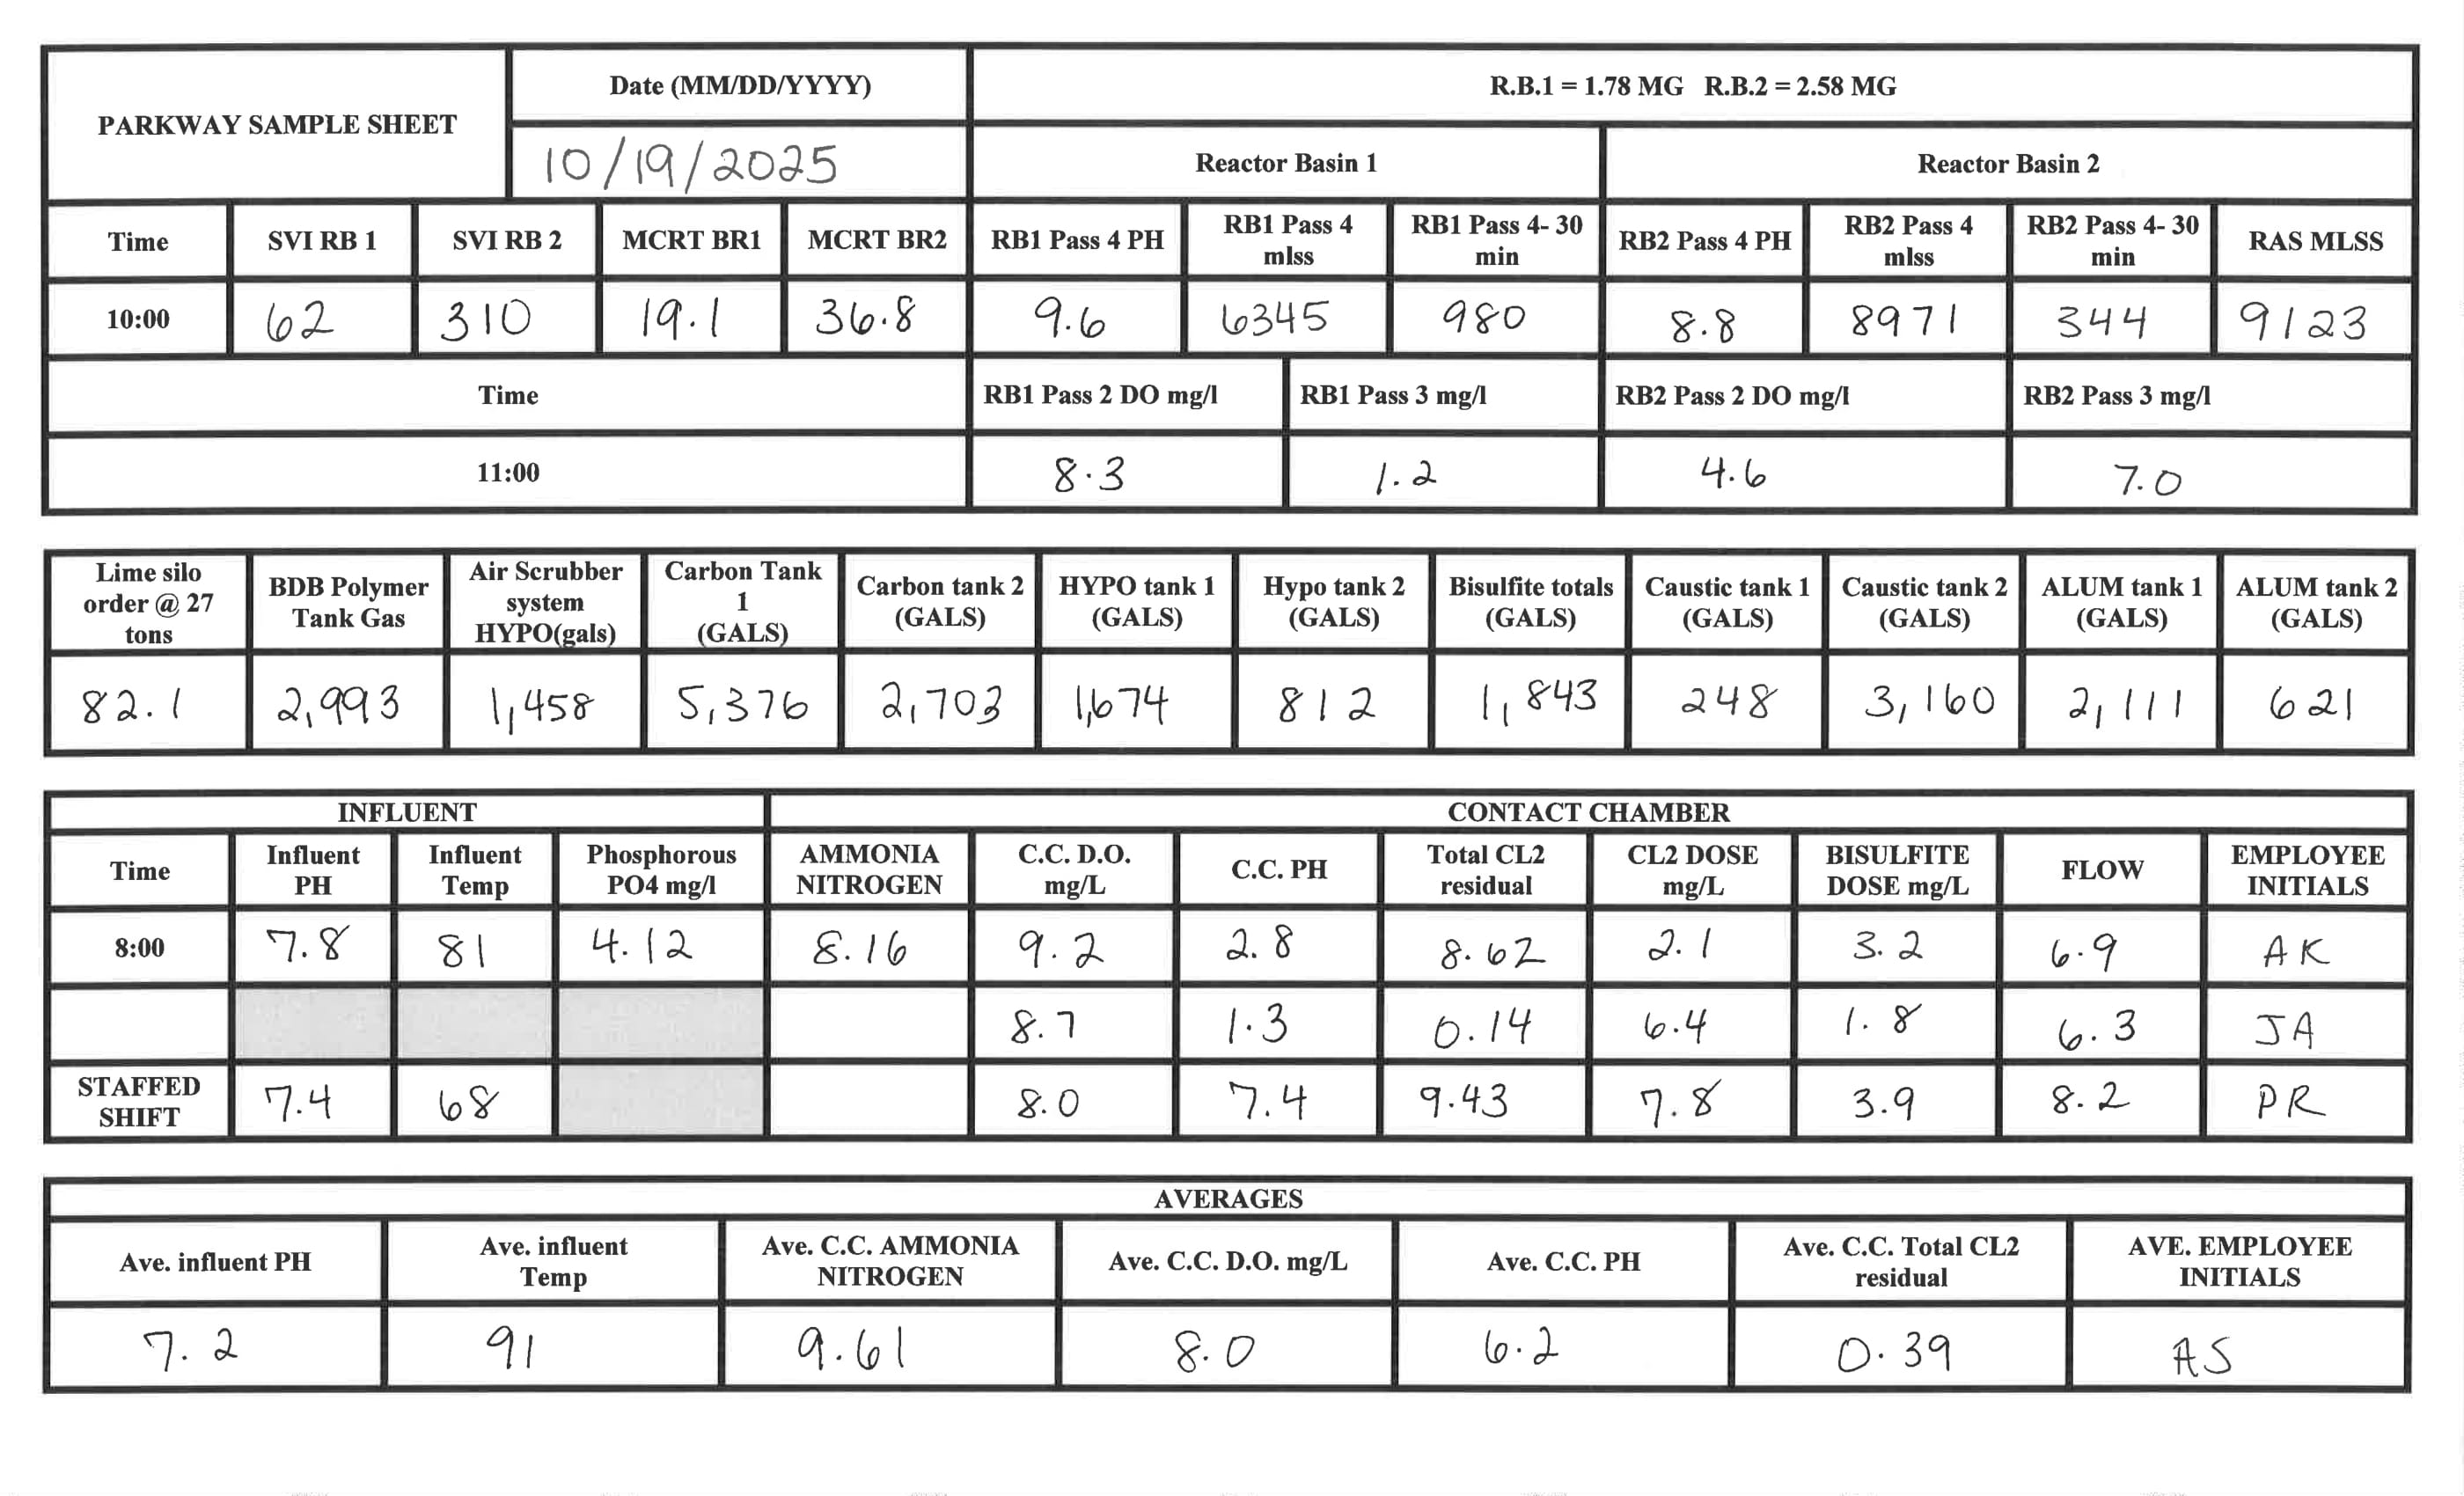 PARKWAY SAMPLE SHEET
Date (MM/DD/YYYY)
10/19/2025
R.B.1 = 1.78 MG R.B.2 = 2.58 MG
Reactor Basin 1
Reactor Basin 2
Time SVI RB 1 SVI RB 2 MCRT BR1 MCRT BR2 RB1 Pass 4 PH RB1 Pass 4 mlss RB1 Pass 4- 30 min RB2 Pass 4 PH RB2 Pass 4 mlss RB2 Pass 4- 30 min RAS MLSS
10:00 62 310 19.1 36.8 9.6 6345 980 8.8 8971 344 9123
Time RB1 Pass 2 DO mg/l RB1 Pass 3 mg/l RB2 Pass 2 DO mg/l RB2 Pass 3 mg/l
11:00 8.3 1.2 4.6 7.0
Lime silo order @ 27 tons BDB Polymer Tank Gas Air Scrubber system HYPO(gals) Carbon Tank 1 (GALS) Carbon tank 2 (GALS) HYPO tank 1 (GALS) Hypo tank 2 (GALS) Bisulfite totals (GALS) Caustic tank 1 (GALS) Caustic tank 2 (GALS) ALUM tank 1 (GALS) ALUM tank 2 (GALS)
82.1 2,993 1,458 5,376 2,703 1,674 812 1,843 248 3,160 2,111 621
INFLUENT CONTACT CHAMBER
Time Influent PH Influent Temp Phosphorous PO4 mg/l AMMONIA NITROGEN C.C. D.O. mg/L C.C. PH Total CL2 residual CL2 DOSE mg/L BISULFITE DOSE mg/L FLOW EMPLOYEE INITIALS
8:00 7.8 81 4.12 8.16 9.2 2.8 8.62 2.1 3.2 6.9 AK
8.7 1.3 0.14 6.4 1.8 6.3 JA
STAFFED SHIFT 7.4 68 8.0 7.4 9.43 7.8 3.9 8.2 PR
AVERAGES
Ave. influent PH Ave. influent Temp Ave. C.C. AMMONIA NITROGEN Ave. C.C. D.O. mg/L Ave. C.C. PH Ave. C.C. Total CL2 residual AVE. EMPLOYEE INITIALS
7.2 91 9.61 8.0 6.2 0.39 AS